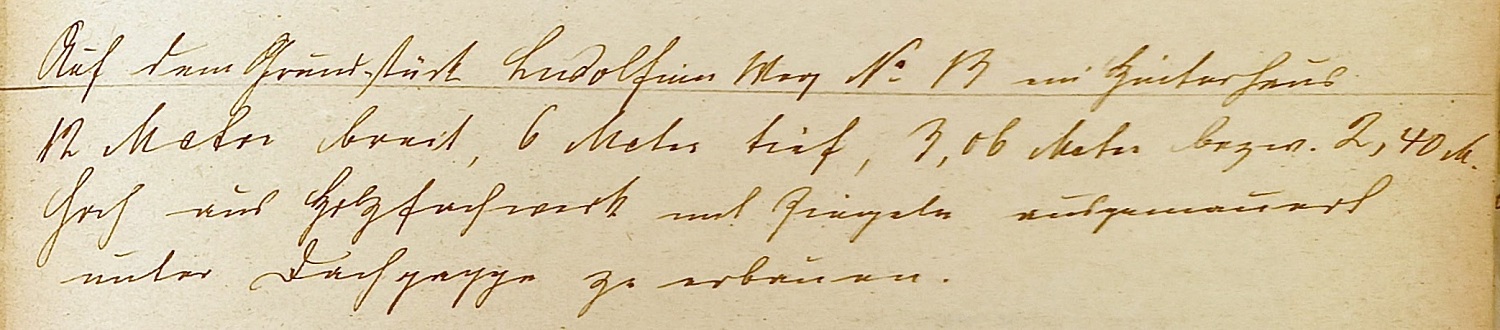 Auf dem Grundstück Ludolfinum Weg No 13 ein Hinterhaus
12 Meter breit, 6 Meter tief, 3,06 Meter bezw. 2,40 M.
hoch aus Holzfachwerk mit Ziegeln ausgemauert
unter Dachpappe zu erbauen.